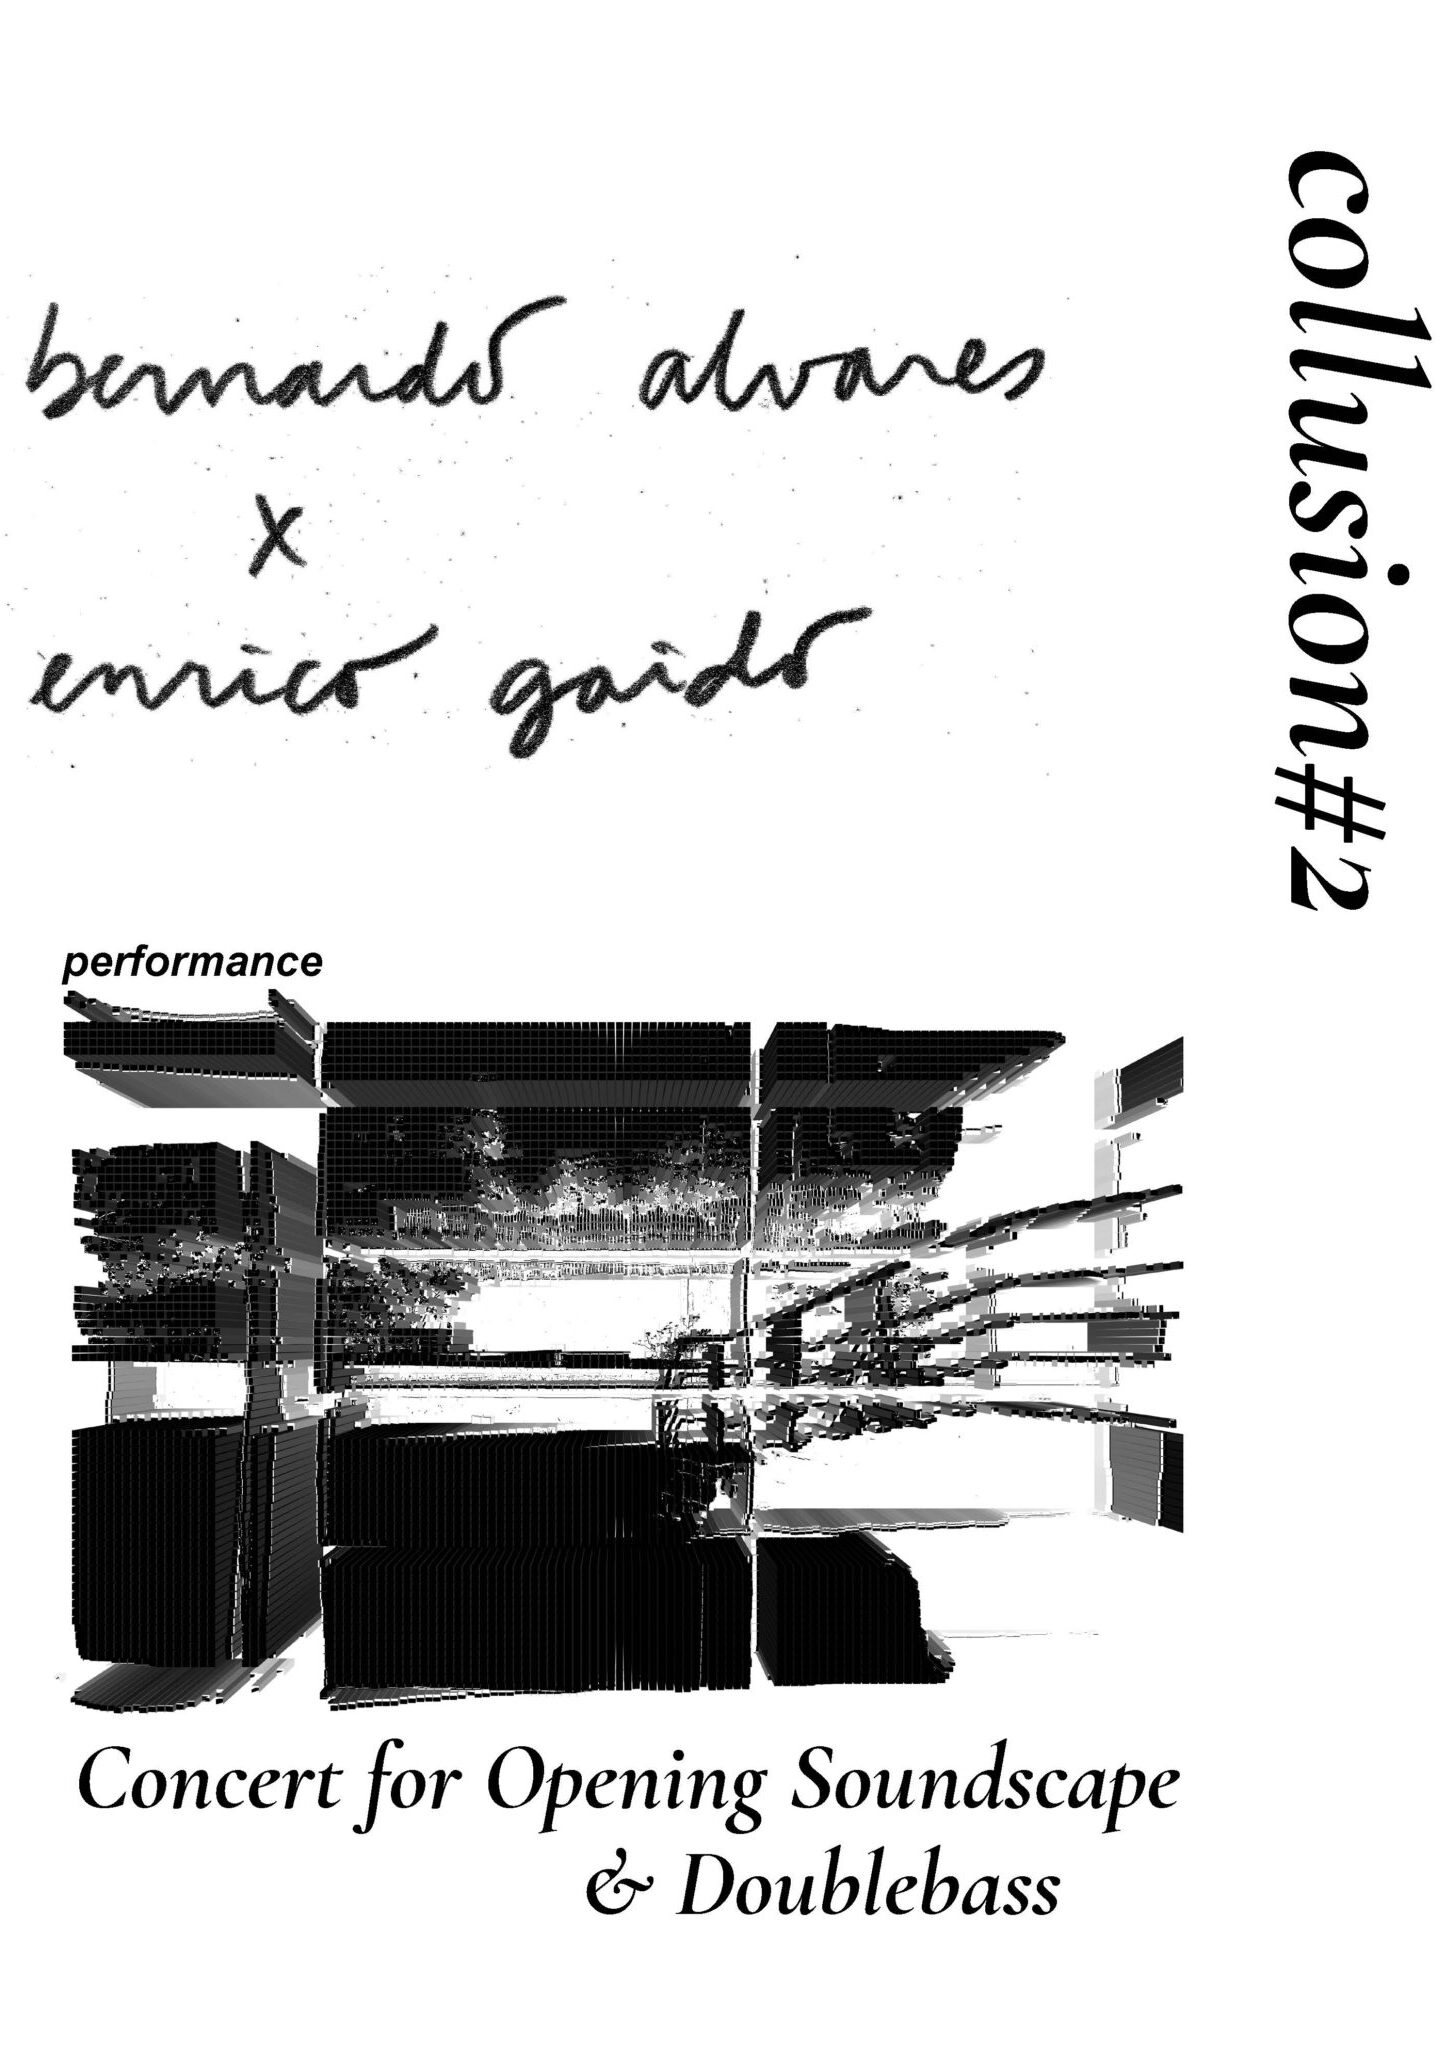 collusion#2
bernardo alvares
x
enrico gaido
performance
Concert for Opening Soundscape
& Doublebass